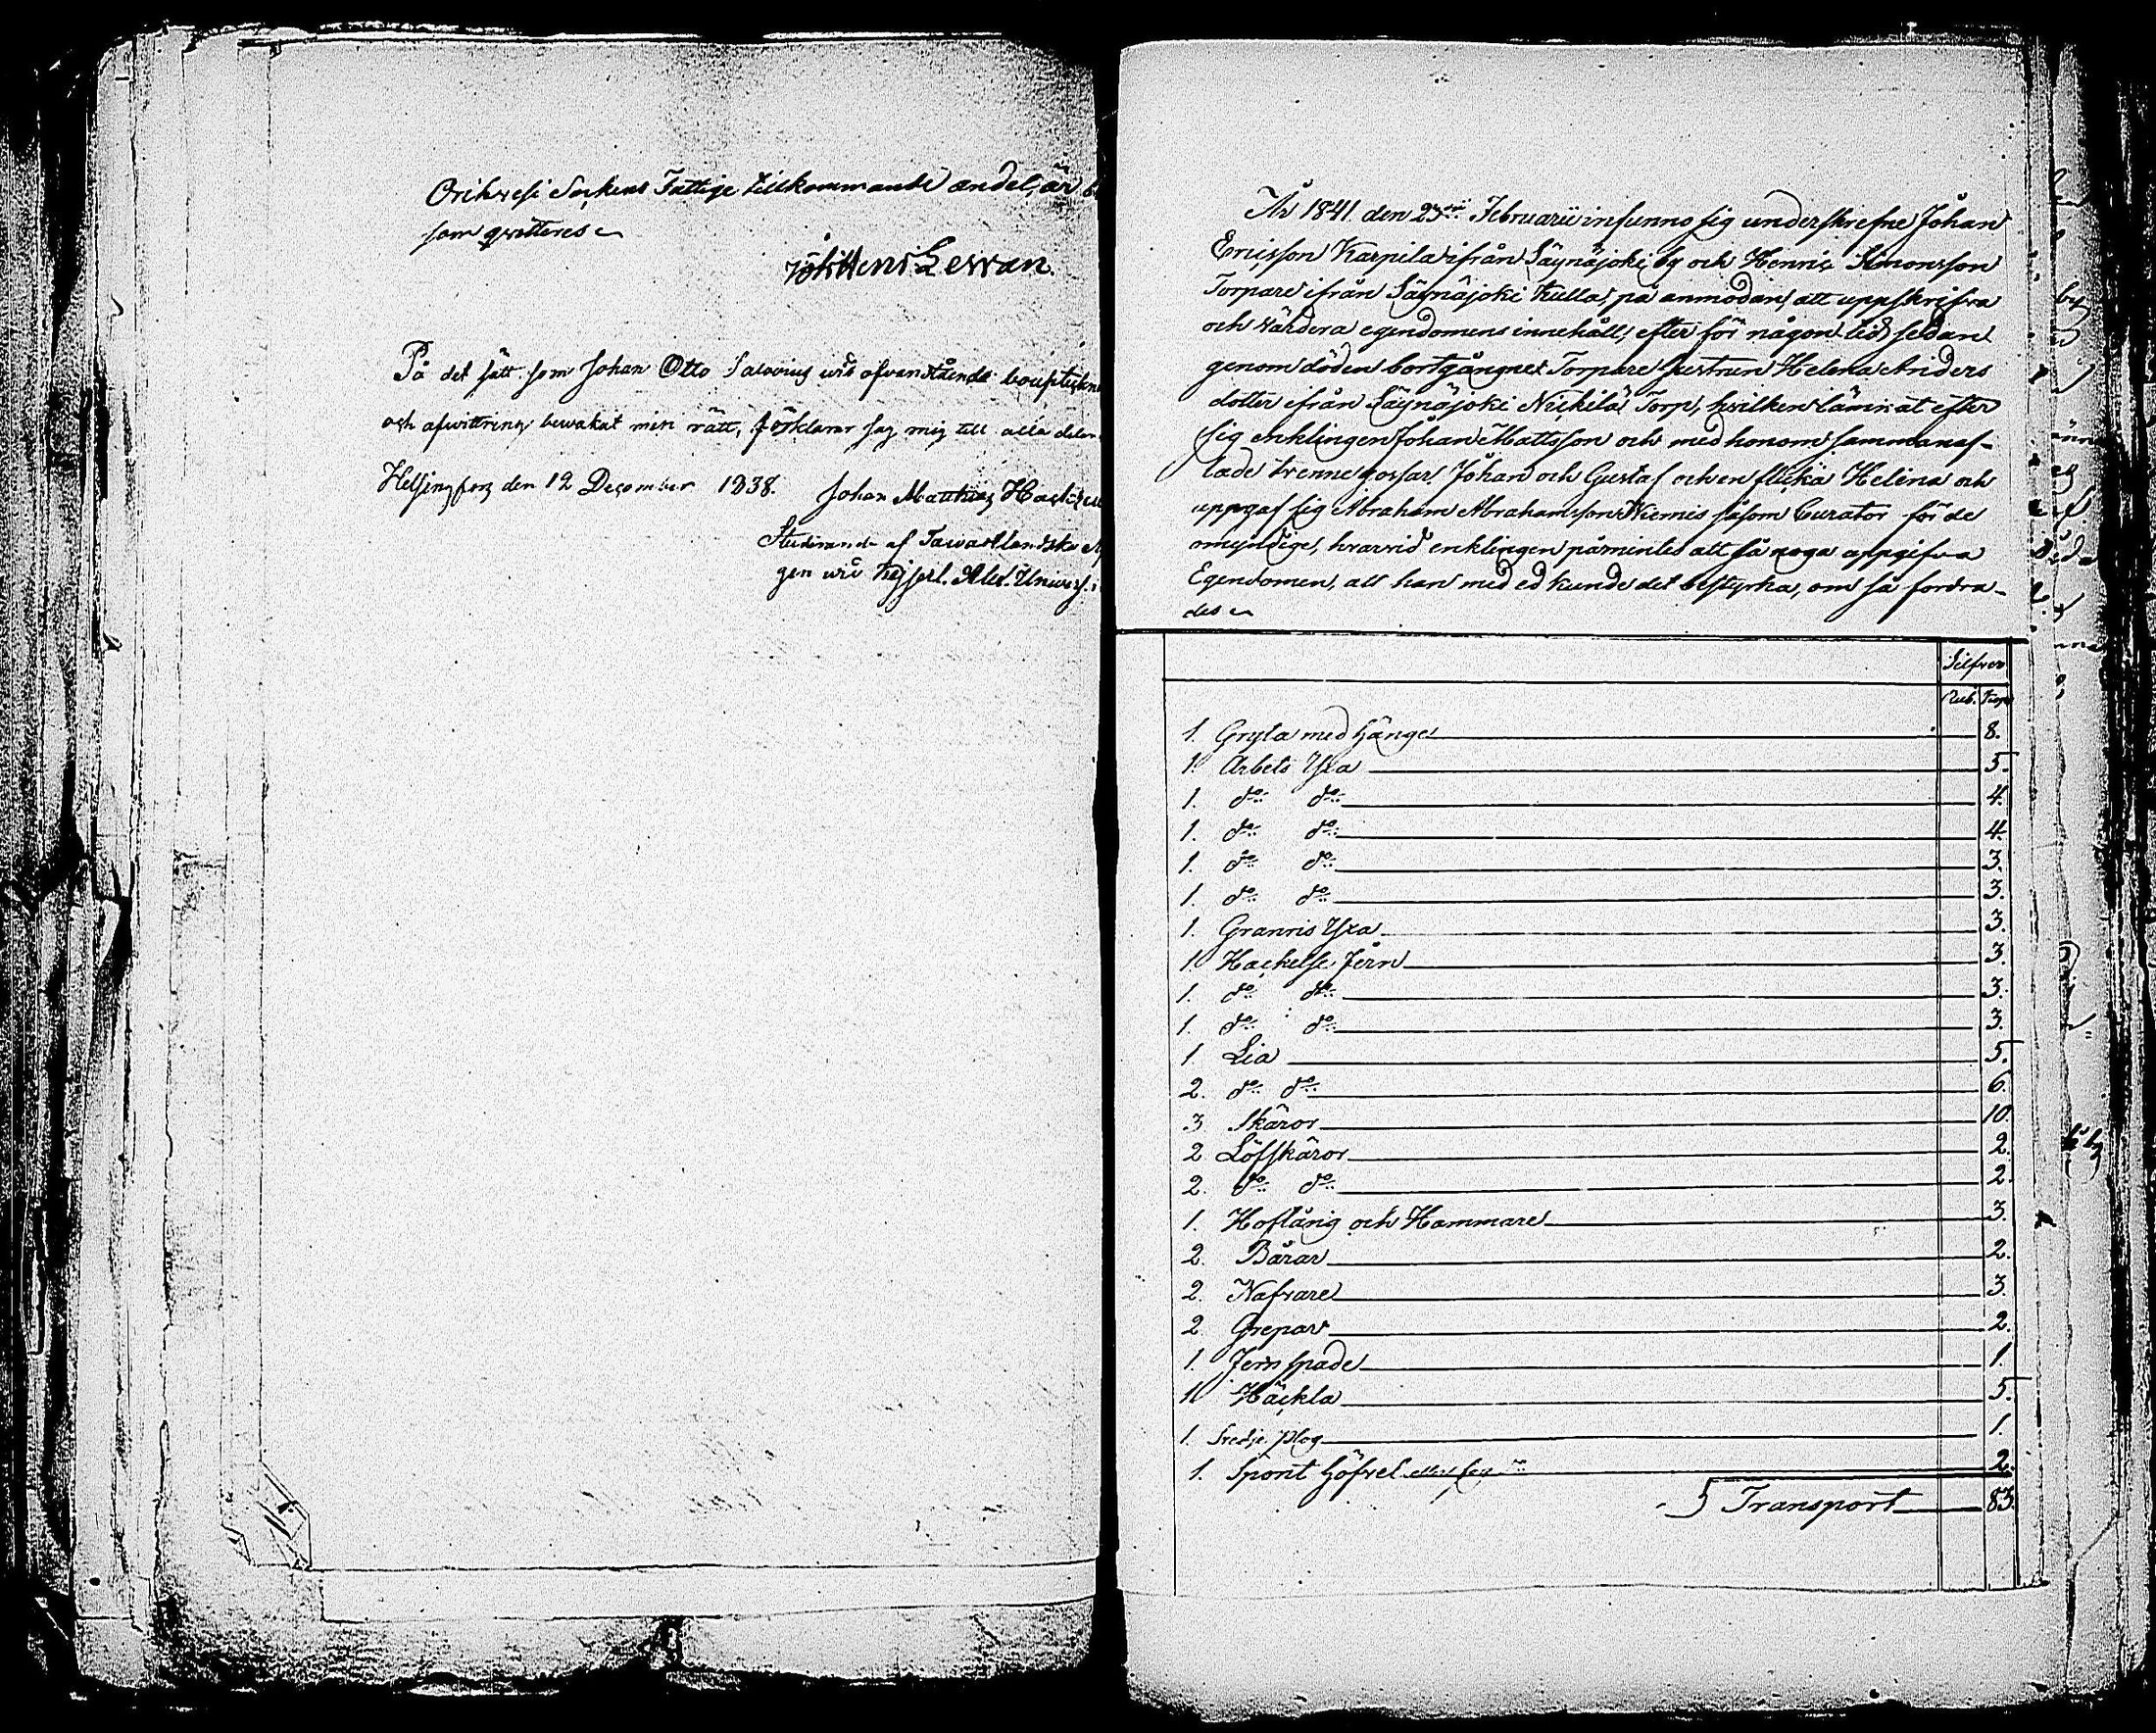 Orihvesi Sockens Fattige tillkommande andel, är
som qvitteres
Johan Lewan.
På det sätt som Johan Otto Salovius wid ofvanstående bouptekn
och afwittring bewakat min rätt, förklarar jag mig till alla delar
Helsingfors den 12 December 1838. Johan Matthias
Studerande af Tawastlandska
gen wid Kejserl. Alex. Univers.
År 1841 den 25 Februarii infunno sig underskrefne Johan
Ericsson Karpila ifrån Säynäjoki by och Henric Simonsson
Torpare ifrån Säynäjoki Kulla, på anmodan att uppskrifva
och värdera egendomens innehåll, efter för någon tid sedan
genom döden bortgångne Torpare hustrun Helena Anders
dotter ifrån Säynäjoki Nickilä Torp, hvilken lämnat efter
sig enklingen Johan Mattsson och med honom sammanaf-
lade tvenne gossar Johan och Gustaf och en flicka Helena och
uppgaf sig Abraham Abrahamsson Niemis såsom Curator för de
omyndige, hvarvid enklingen påmintes att så noga uppgifva
Egendomen, att han med ed kunde det bestyrka, om så fordra-
des
Silfver
Rub. Kop
1. Gryta med hänge 8.
1. Arbets Yxa 5.
1. do do 4.
1. do do 4.
1. do do 3.
1. do do 3.
1. Granris Yxa 3.
1. Hackelse Jern 3.
1. do do 3.
1. do do 3.
1. Lia 5.
2. do do 6.
3. Skäror 10.
2. Löfskäror 2.
2. do do 2.
1. Hoftång och Hammare 3.
2. Bårar 2.
2. Nafvare 3.
2. Grepar 2.
1. Jern spade 1.
1. Häckla 5.
1. Sredje Plog 1.
1. Spont höfvel 2.
Transport 83.